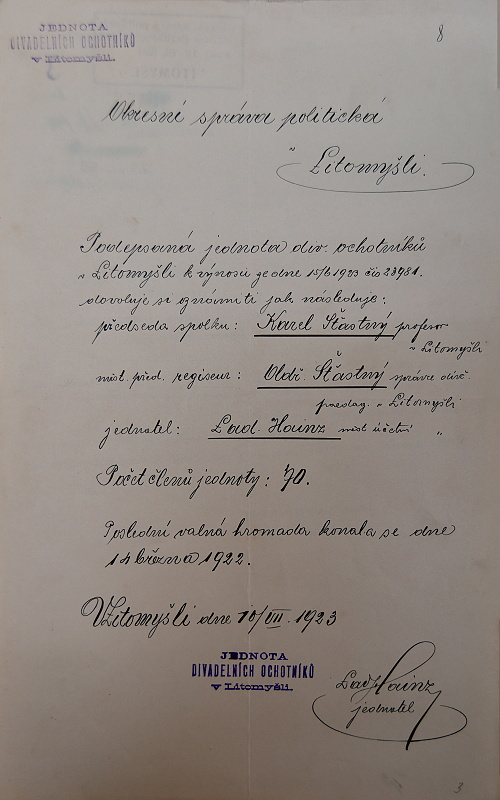 JEDNOTA
DIVADELNÍCH OCHOTNÍKŮ
v Litomyšli.
8
Okresní správa politická
v
Litomyšli.
Podepsaná jednota div. ochotníků
v Litomyšli k výnosu ze dne 15/6 1923 čís 23981.
dovoluje si oznámiti jak následuje:
předseda spolku: Karel Šťastný profesor
v Litomyšli
míst. před. regiseur: Oldř. Šťastný správce
paedag. v Litomyšli
jednatel: Lad. Hainz účetní "
Počet členů jednoty: 70.
Poslední valná hromada konala se dne
14 března 1922.
V Litomyšli dne 10/VII. 1923
JEDNOTA
DIVADELNÍCH OCHOTNÍKŮ
v Litomyšli.
Lad. Hainz
jednatel
3